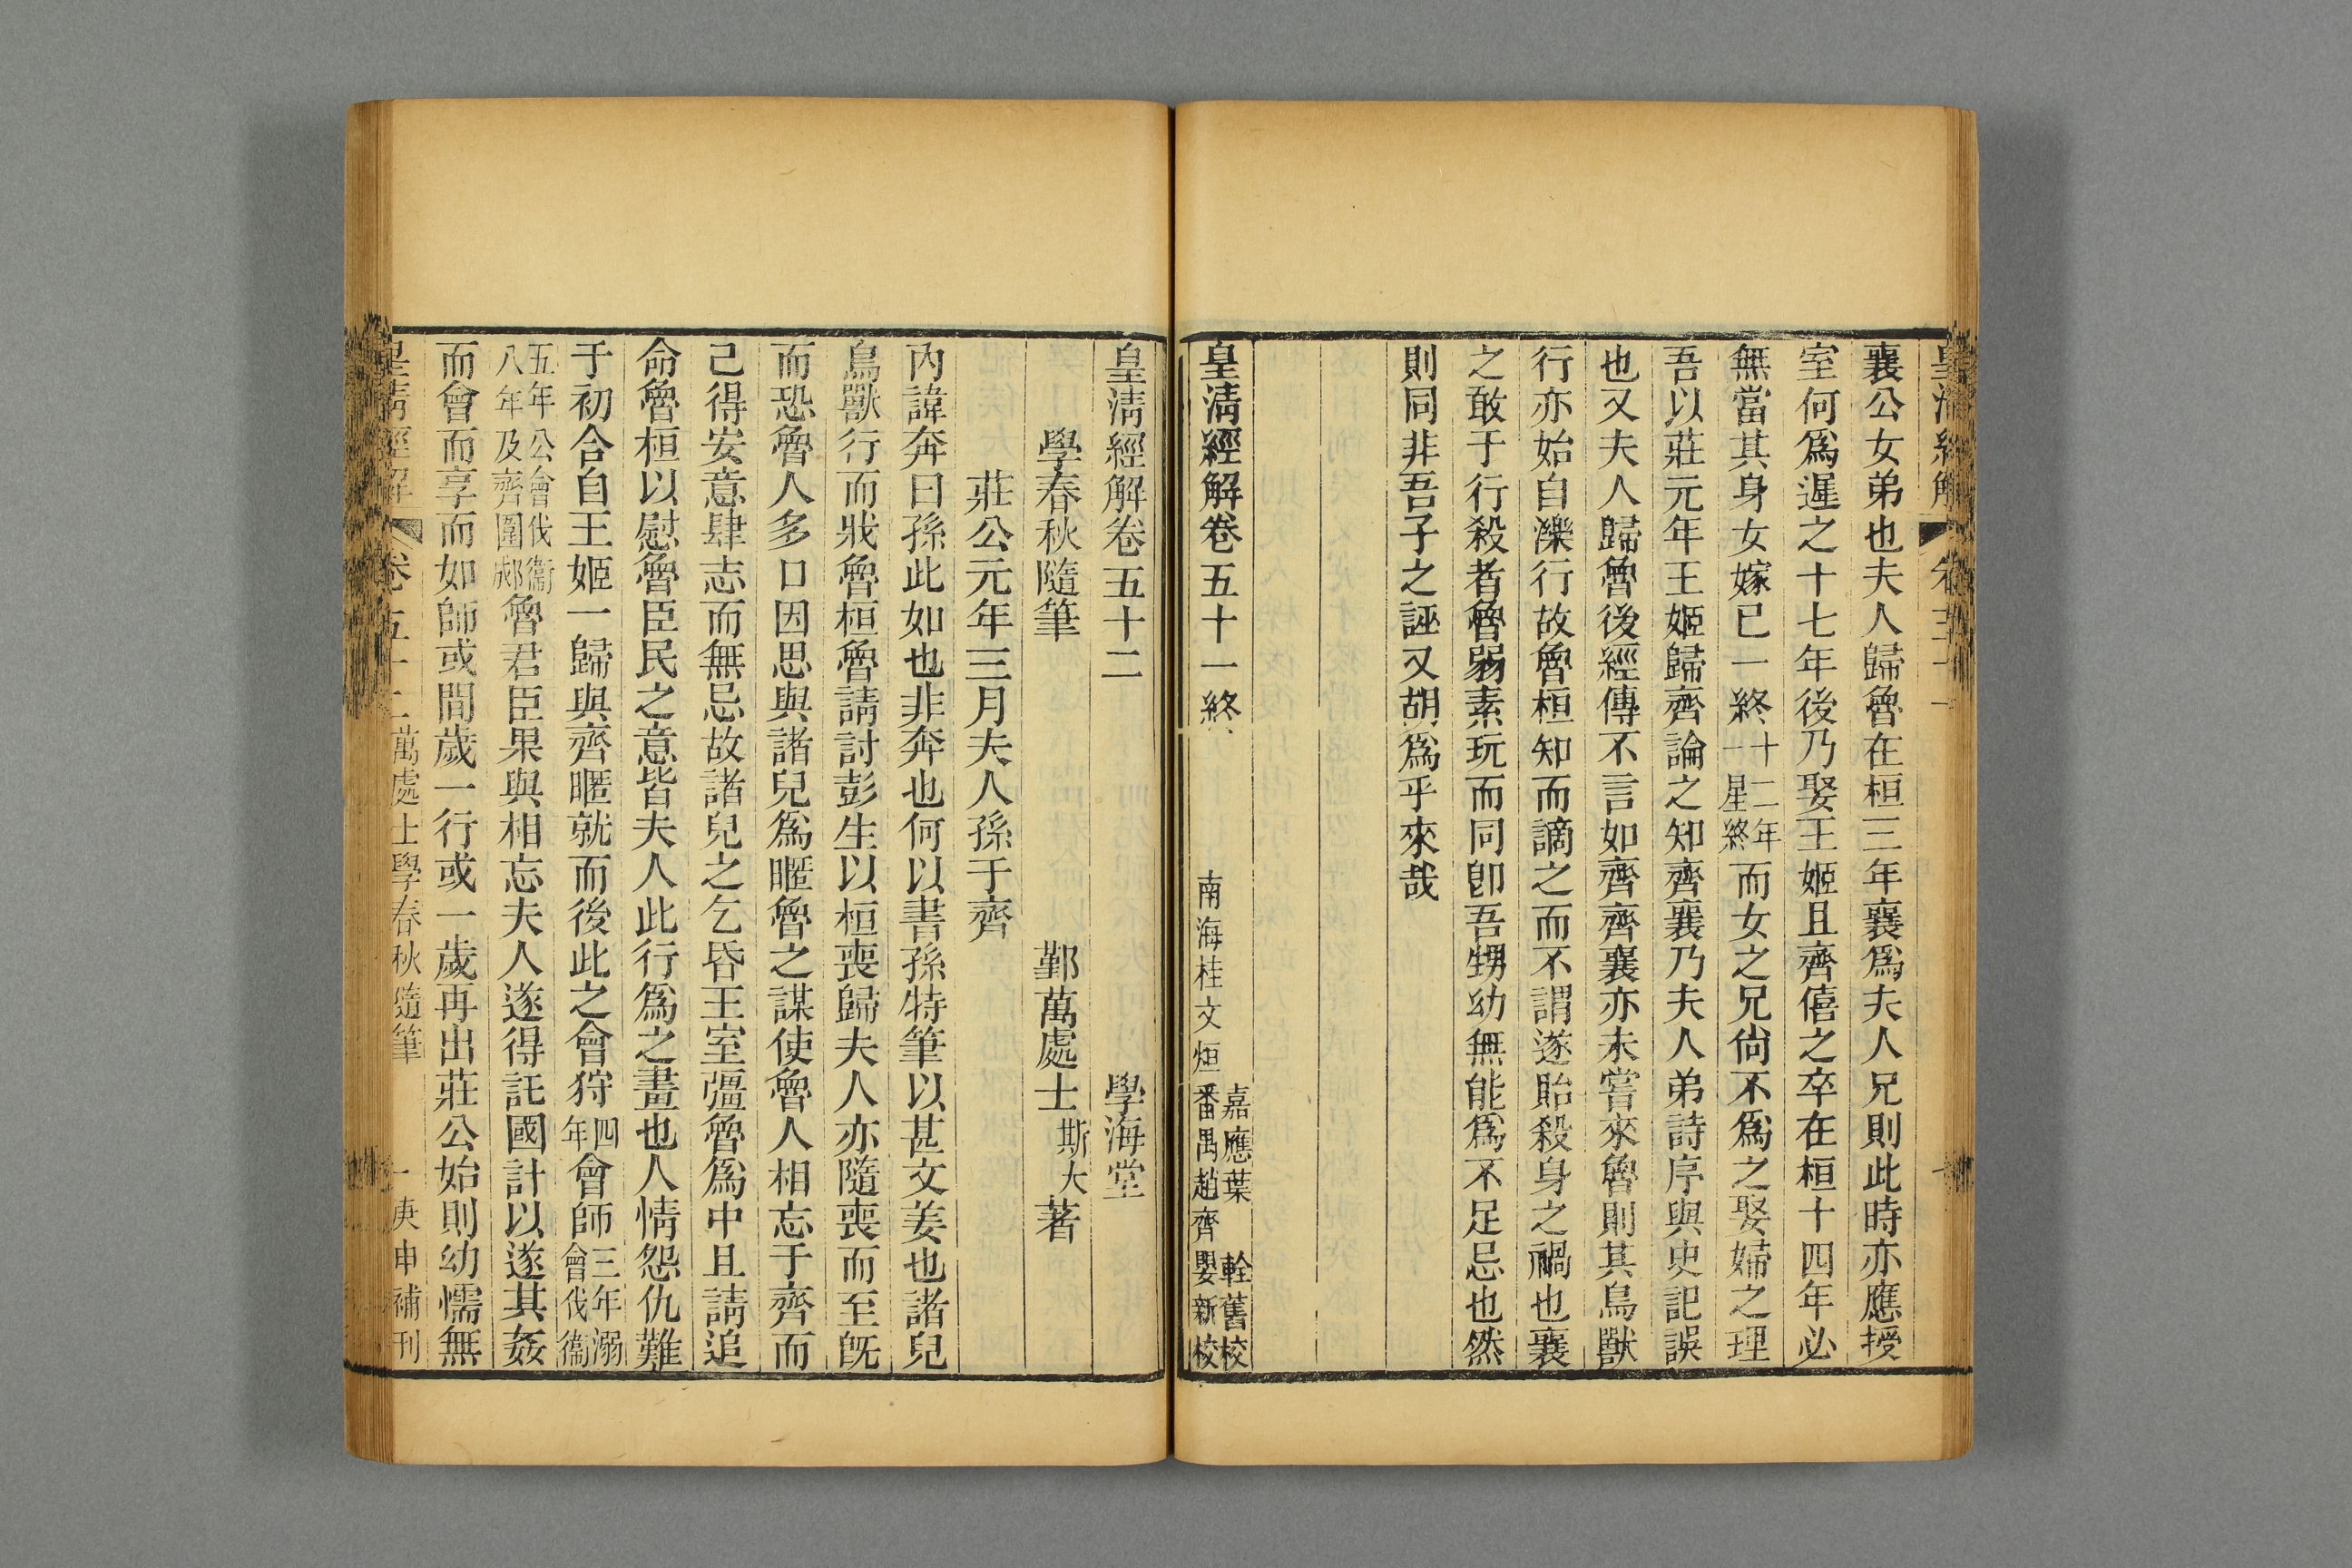 襄公女弟也夫人歸魯在桓三年襄爲夫人兄則此時亦應授
室何爲遲之十七年後乃娶王姬且齊僖之卒在桓十四年必
無當其身女嫁已一終十二年一星終而女之兄尙不爲之娶婦之理
吾以莊元年王姬歸齊論之知齊襄乃夫人弟詩序與史記誤
也又夫人歸魯後經傳不言如齊齊襄亦未嘗來魯則其鳥獸
行亦始自濼行故魯桓知而謫之而不謂遂貽殺身之禍也襄
之敢于行殺者魯弱素玩而同卽吾甥幼無能爲不足忌也然
則同非吾子之誣又胡爲乎來哉
皇淸經解卷五十一終
南海桂文烜
嘉應葉軨舊校
番禺趙齊嬰新校
皇淸經解卷五十二 學海堂
學春秋隨筆 鄞萬處士斯大著
莊公元年三月夫人孫于齊
內諱奔曰孫此如也非奔也何以書孫特筆以甚文姜也諸兒
鳥獸行而戕魯桓魯請討彭生以桓喪歸夫人亦隨喪而至旣
而恐魯人多口因思與諸兒爲暱魯之謀使魯人相忘于齊而
己得安意肆志而無忌故諸兒之乞昏王室彊魯爲中且請追
命魯桓以慰魯臣民之意皆夫人此行爲之畫也人情怨仇難
于初合自王姬一歸與齊暱就而後此之會狩四年會師三年溺會伐衞
五年公會伐衞八年及齊圍郕魯君臣果與相忘夫人遂得託國計以遂其姦
而會而享而如師或間歲一行或一歲再出莊公始則幼懦無
皇淸經解 卷五十二萬處士學春秋隨筆 一 庚申補刊